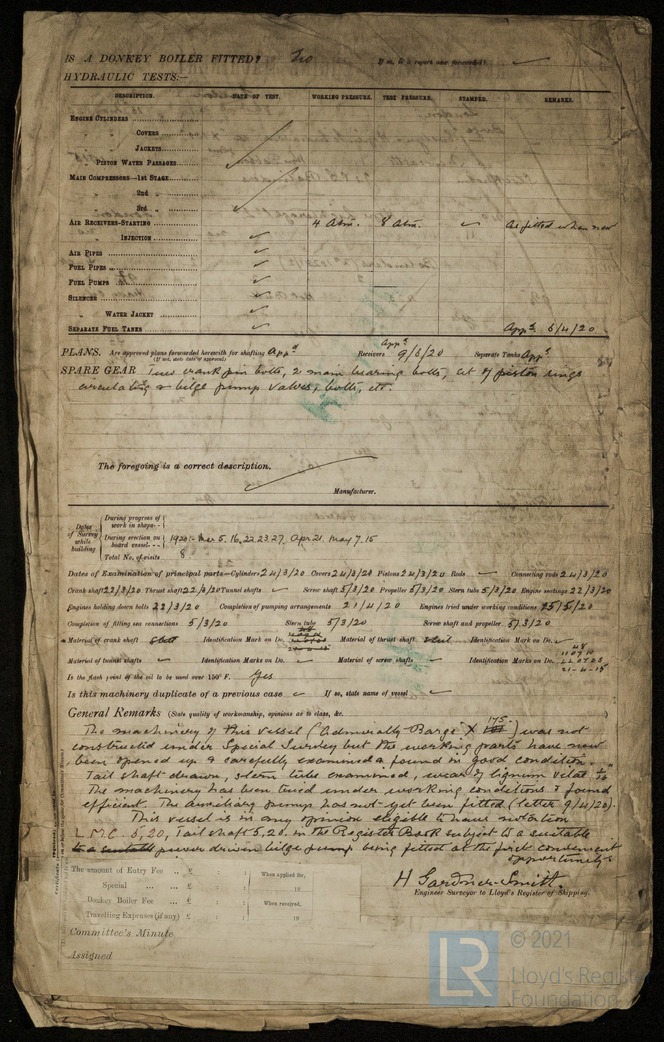 IS A DONKEY BOILER FITTED? No If so, is a report now forwarded? ✓
HYDRAULIC TESTS:—
DESCRIPTION. DATE OF TEST. WORKING PRESSURE. TEST PRESSURE. STAMPED. REMARKS.
ENGINE CYLINDERS
" COVERS
" JACKETS
" PISTON WATER PASSAGES
MAIN COMPRESSORS—1st STAGE
" 2nd "
" 3rd "
AIR RECEIVERS—STARTING 4 Atm. 8 Atm. ✓ As fitted when new
" INJECTION ✓
AIR PIPES ✓
FUEL PIPES ✓
FUEL PUMPS ✓
SILENCER ✓
" WATER JACKET ✓
SEPARATE FUEL TANKS ✓ Appd. 6/4/20
PLANS. Are approved plans forwarded herewith for shafting Appd Receivers Appd 9/6/20 Separate Tanks Appd
(If not, state date of approval)
SPARE GEAR Two crank pin bolts, 2 main bearing bolts, set of piston rings
circulating & bilge pump valves, bolts, etc.
The foregoing is a correct description.
Manufacturer.
Dates of Survey while building
During progress of work in shops--
During erection on board vessel--- 1920:- Mar 5. 16. 22. 23. 27. Apr 21. May 7. 15
Total No. of visits 8
Dates of Examination of principal parts—Cylinders 24/3/20 Covers 24/3/20 Pistons 24/3/20 Rods ✓ Connecting rods 24/3/20
Crank shaft 22/3/20 Thrust shaft 22/3/20 Tunnel shafts ✓ Screw shaft 5/3/20 Propeller 5/3/20 Stern tube 5/3/20 Engine seatings 22/3/20
Engines holding down bolts 23/3/20 Completion of pumping arrangements 21/4/20 Engines tried under working conditions 15/5/20
Completion of fitting sea connections 5/3/20 Stern tube 5/3/20 Screw and propeller 5/3/20
Material of crank shaft steel Identification Mark on Do. Material of thrust shaft steel Identification Mark on Do. ✓
Material of tunnel shafts ✓ Identification Marks on Do. ✓ Material of screw shafts ✓ Identification Marks on Do.
Is the flash point of the oil to be used over 150° F. Yes
Is this machinery duplicate of a previous case ✓ If so, state name of vessel ✓
General Remarks (State quality of workmanship, opinions as to class, &c.
The machinery of this vessel ("Admiralty Barge" X 175) was not
constructed under Special Survey but the working parts have now
been opened up & carefully examined & found in good condition.
Tail shaft drawn, stern tube examined, wear of lignum vitae
The machinery has been tried under working conditions & found
efficient. The auxiliary pump has not yet been fitted (letter 9/4/20).
This vessel is in my opinion eligible to have notation
L.M.C. 5,20, Tail shaft 5,20. in the Register Book subject to a suitable
power driven bilge pump being fitted at the first convenient
opportunity
The amount of Entry Fee .. £ : : When applied for,
Special ... ... £ : : 19
Donkey Boiler Fee ... £ : : When received,
Travelling Expenses (if any) £ : : 19
H Gardner-Smith.
Engineer Surveyor to Lloyd's Register of Shipping.
Committee's Minute
Assigned
LR
© 2021
Lloyd's Register
Foundation